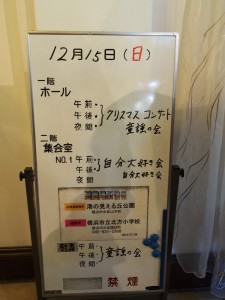 12月15日(日)
一階
ホール
午前・
午後・ クリスマス コンサート
夜間 童謡の会
二階
集合室
NO.1 午前・
午後・ 自分大好き会
夜間 自分大好き会
港の見える丘公園
横浜市立北方小学校
午前・
午後・ 童謡の会
夜間
禁煙